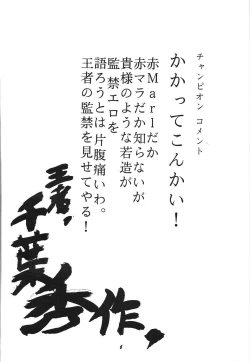 チャンピオン コメント
かかってこんかい！
赤Marlだか
赤マラだか知らないが
貴様のような若造が
監禁エロを
語ろうとは片腹痛いわ。
王者の監禁を見せてやる！
王者，
千葉秀作，